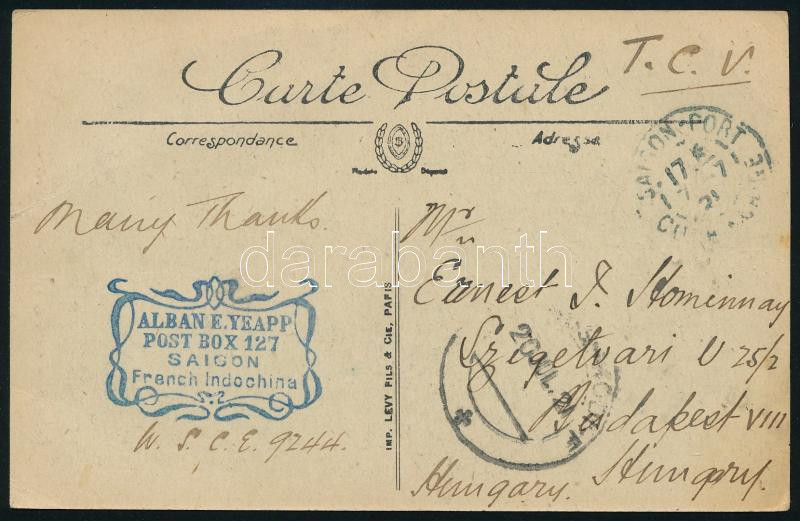 T. C. V.
Carte Postale
Correspondance
Adresse
Modèle Déposé
SAIGON-PORT
17
7
21
Many Thanks.
darabanth
Mr
Ernest J. Hominnay
Szigetvari U 25/2
Budapest VIII
Hungary. Hungary.
ALBAN E. YEAPP
POST BOX 127
SAIGON
French Indochina
S.2
W. S. C. E. 9244.
IMP. LEVY FILS & CIE, PARIS